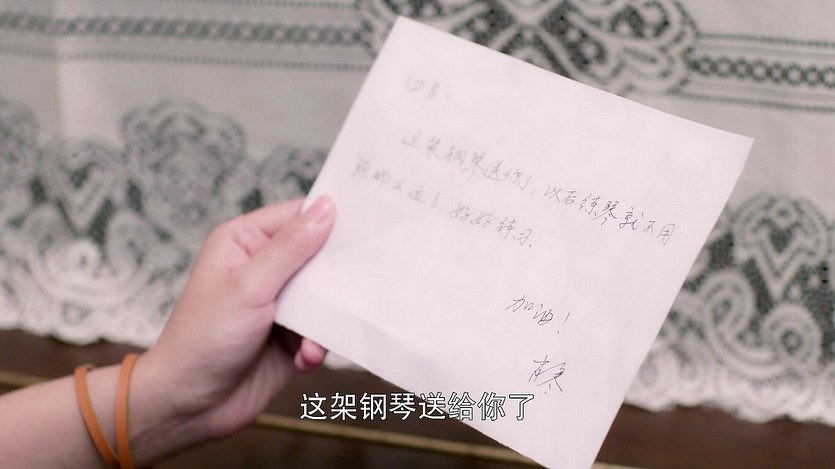 这架钢琴送你了，以后练琴就不用
跑那么远了，好好练习.
加油！
这架钢琴送给你了